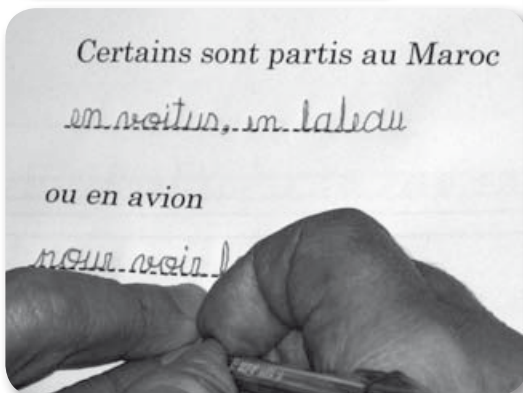 Certains sont partis au Maroc
en voitus, en bateau
ou en avion
pour voir l